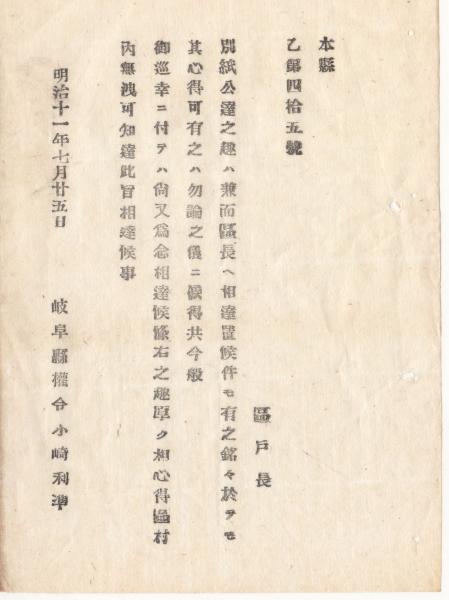 本縣
乙第四拾五號
區戸長
別紙公達之趣ハ兼而區長ヘ相達置候件モ有之銘々於テモ
其心得可有之ハ勿論之儀ニ候得共今般
御巡幸ニ付テハ尚又爲念相達候條右之趣厚ク相心得區村
內無洩可知達此旨相達候事
明治十一年七月廿五日
岐阜縣權令小崎利準